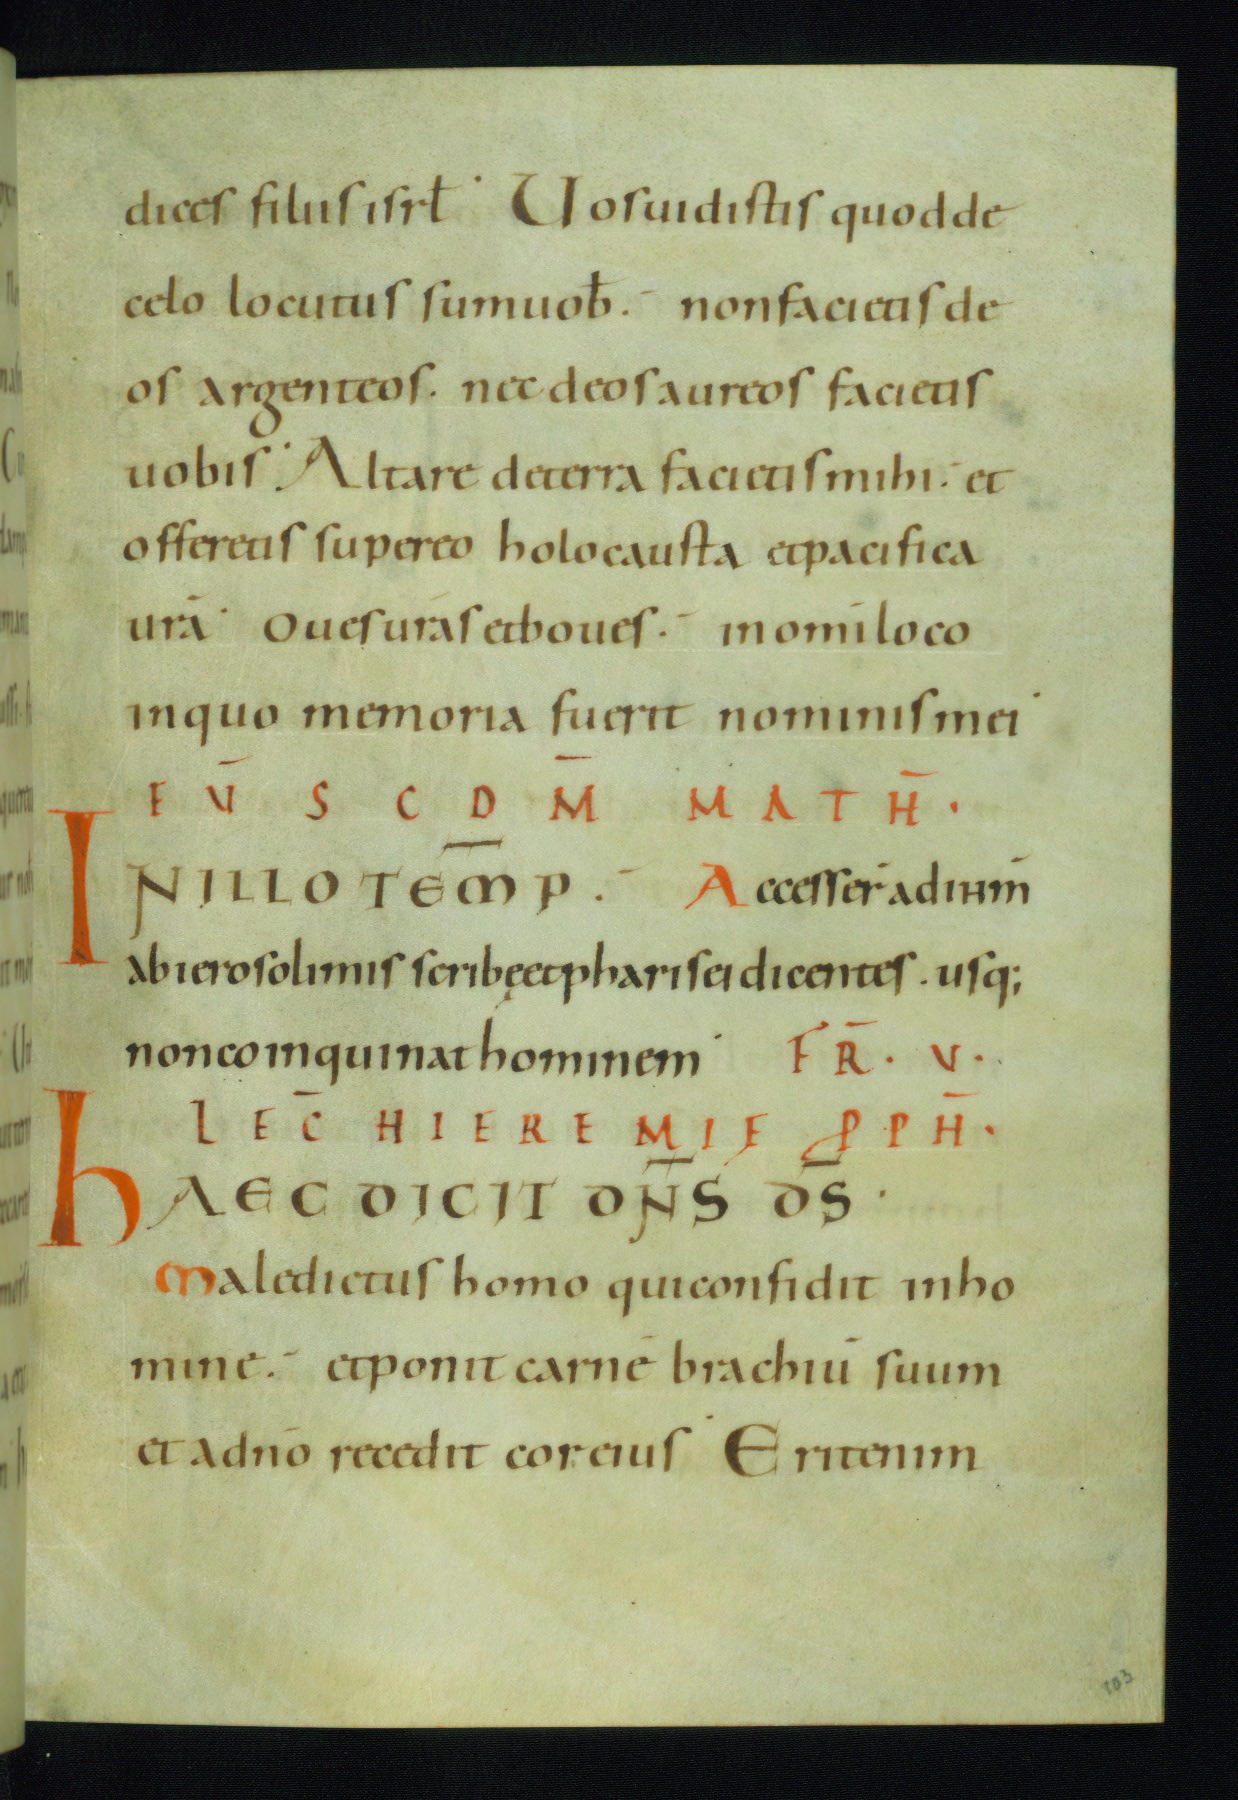 dices filiis isrł· Uos uidistis quod de
celo locutus sum uob̄. non facietis de
os argenteos. nec deos aureos facietis
uobis· Altare de terra facietis mihi. et
offeretis super eo holocausta et pacifica
ura̅· Oues uras̅ et boues. in omi̅ loco
in quo memoria fuerit nominis mei·
EV̅ S C D M̅ MATH̅·
IN ILLO TEM̅P. Accesser̅ ad ihm̅
ab ierosolimis scribę et pharisei dicentes. usq;
non coinquinat hominem· FR̅· V·
LEC̅ HIEREMIE PPH̅·
hAEC DICIT DN̅S DS̅·
Maledictus homo qui confidit in ho
mine. et ponit carne̅ brachiu̅ suum
et a dn̅o recedit cor eius· Erit enim
103